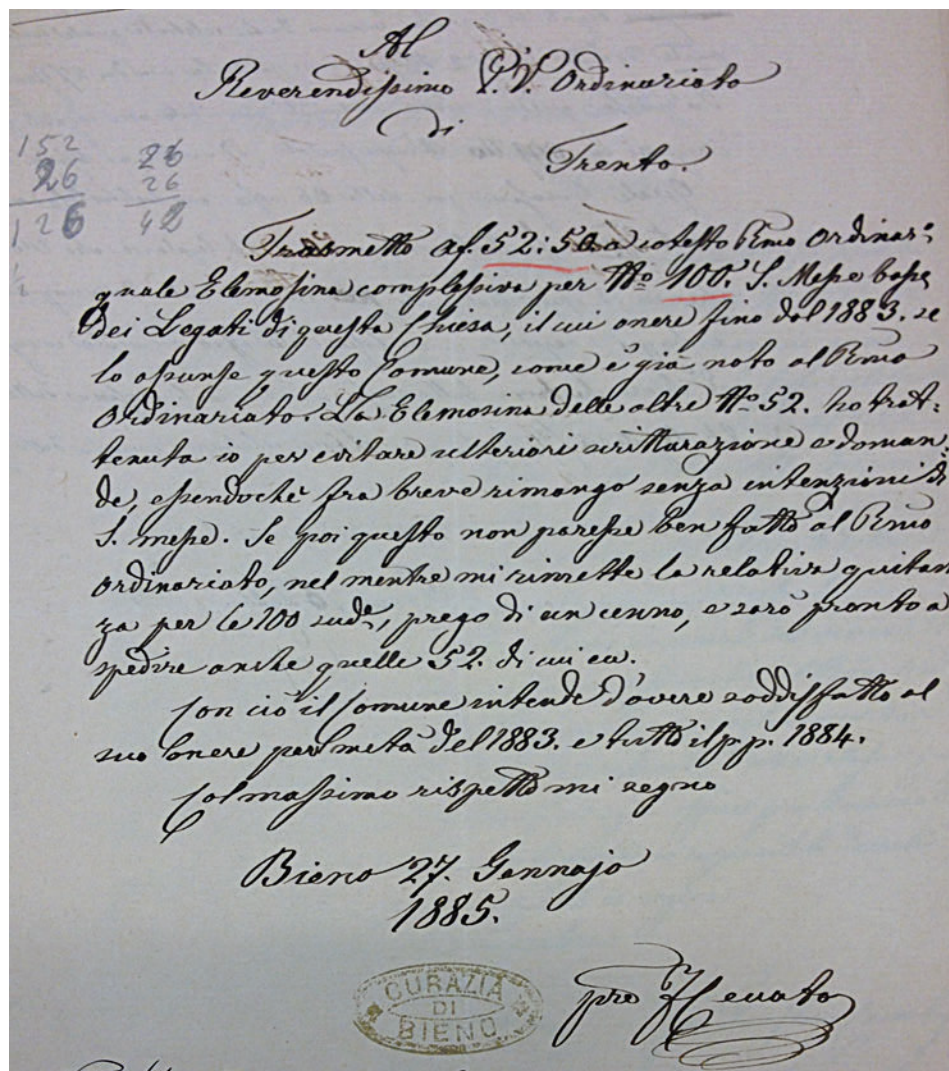 Al
Reverendissimo P. V. Ordinariato
di
Trento.
152 26
26 26
126 42
Trasmetto af. 52:50 a cotesto Rmo Ordinar:º
quale Elemosina complessiva per Nº 100. S. Messe basse
dei Legati di questa Chiesa, il cui onere fino dal 1883. se
lo assunse questo Comune, come è già noto al Rmo
Ordinariato. La Elemosina delle altre Nº 52. ho trat-
tenuta io per evitare ulteriori scritturazione e doman
de, essendochè fra breve rimango senza intenzioni di
S. messe. Se poi questo non paresse ben fatto al Rmo
Ordinariato, nel mentre mi rimette la relativa quitan
za per le 100 sudde, prego di un cenno, e sarò pronto a
spedire anche quelle 52. di cui
Con ciò il Comune intende d'avere soddisfatto al
suo onere per metà del 1883. e tutto il p.p. 1884.
Col massimo rispetto mi segno
Bieno 27. Gennajo
1885.
CURAZIA
DI
BIENO
pre